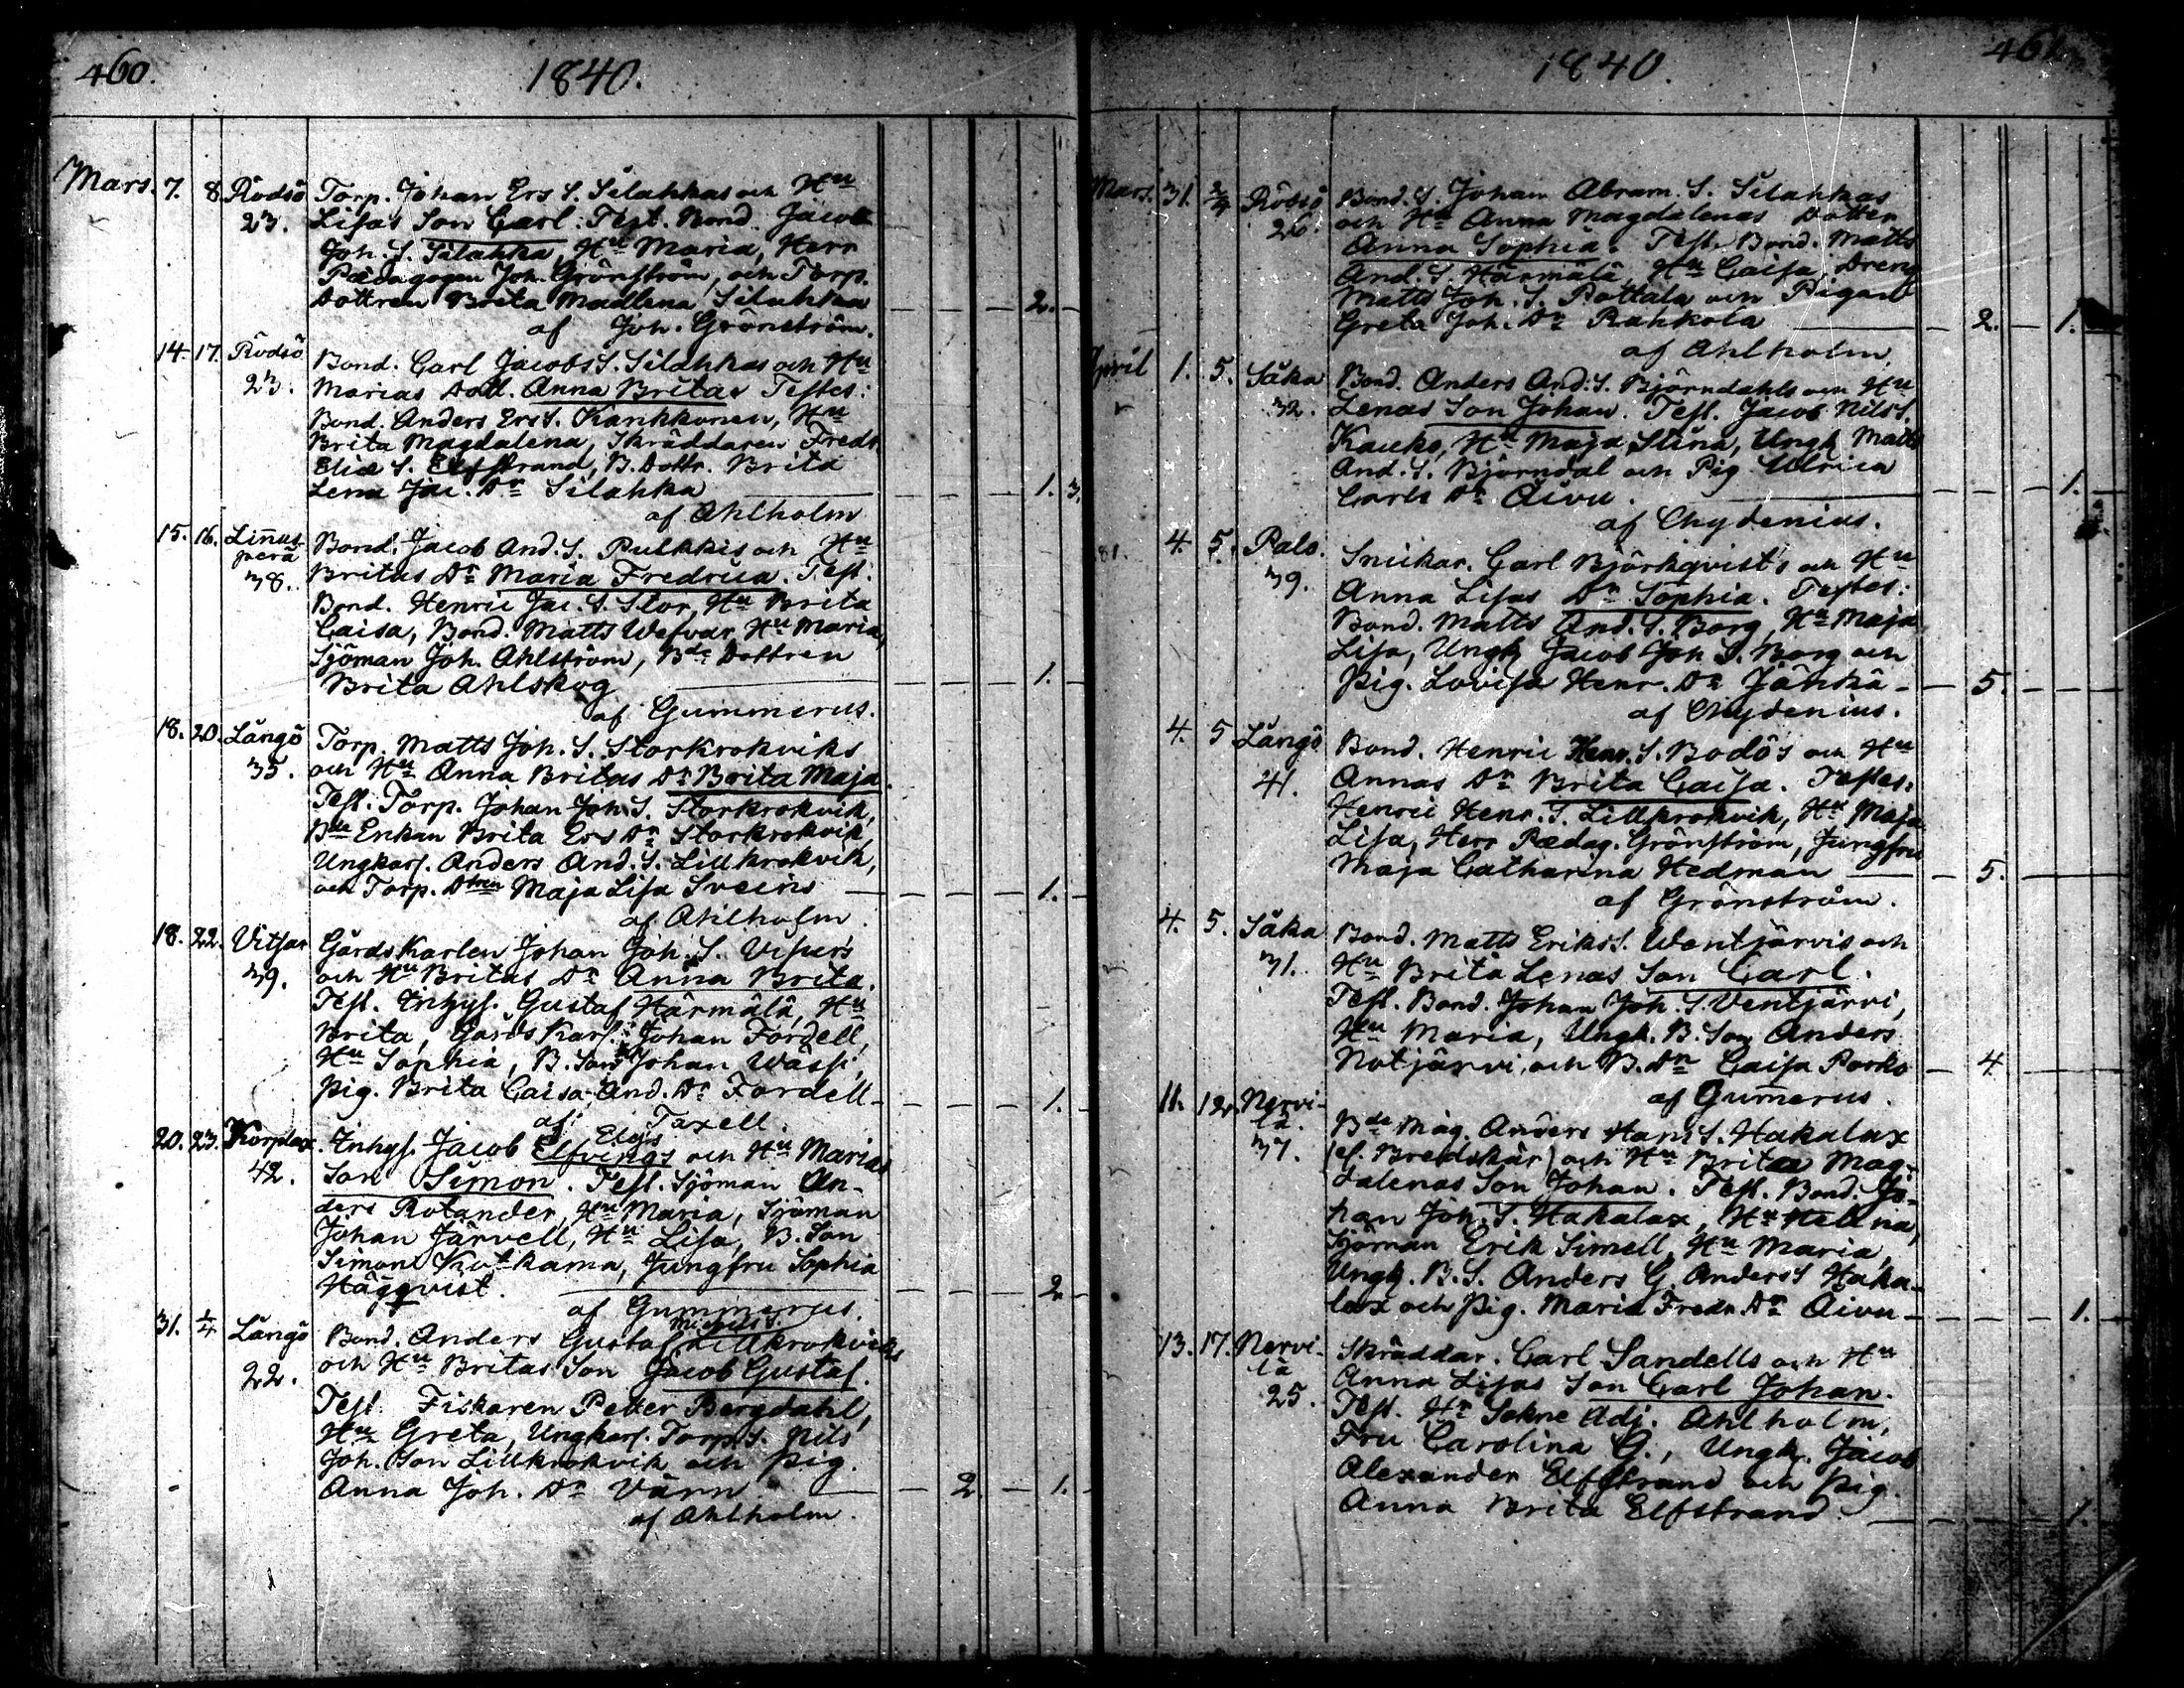 460.
1840.
Mars. 7. 8. Rödsö Torp. Johan Ers S. Silahkas och Hu
23. Lisas Son Carl. Test. Bond. Jacob
Joh. S. Silahka, Hu Maria, Herr
Pædagogen Joh. Grönström, och Torp.
Dottren Brita Madlena Silahka 2.
af Joh. Grönström.
14. 17. Rödsö Bond. Carl Jacobs S. Silahkas och Hu
23. Marias Dott. Anna Brita. Testes:
Bond. Anders Ers S. Kankkonen, Hu
Brita Magdalena, Skräddaren Fredr
Elias S. Elfstrand, B. Dottr. Brita
Lena Jac. Dr Silahka 1. 3.
af Ahlholm
15. 16. Linnus-
perä Bond. Jacob And. S. Pulkkis och Hu
38. Britas Dr Maria Fredrica. Test.
Bond. Henric Jac. S. Stor, Hu Brita
Caisa, Bond. Matts Wefvar, Hu Maria,
Sjöman Joh. Ahlström, Bde Dottren
Brita Ahlskog 1.
af Gummerus.
18. 20. Långö Torp. Matts Joh. S. Storkrokviks
35. och Hu Anna Britas Dr Brita Maja.
Test. Torp. Johan Joh. S. Storkrokvik,
Bde Enkan Brita Ers Dr Storkrokvik,
Ungkarl. Anders And. S. Lillkrokvik,
och Torp. Dtren Maja Lisa Sveins 1.
af Ahlholm.
18. 22. Vitsar Gårdskarlen Johan Joh. S. Visurs
39. och Hu Britas Dr Anna Brita.
Test. Inhys. Gustaf Härmälä, Hu
Brita, Gårdskarl. Johan Fordell,
Hu Sophia, B. Son Johan Wässi,
Pig. Brita Caisa And. Dr Fordell 1.
af Taxell.
20. 23. Korplax Inhys. Jacob Elfvings och Hu Marias
42. Son Simon. Test. Sjöman An-
ders Rotander, Hu Maria, Sjöman
Johan Järvell, Hu Lisa, B. Son
Simon Kotkama, Jungfru Sophia
Häggqvist. 2
af Gummerus.
31. 1/4 Långö Bond. Anders Gustaf Michels S. Lillkrokviks
22. och Hu Britas Son Jacob Gustaf.
Test. Fiskaren Petter Bergdahl,
Hu Greta, Ungkarl. Torp. S. Nils
Joh. Son Lillkrokvik och Pig.
Anna Joh. Dr Värn 2. 1.
af Ahlholm.
1840.
461.
Mars. 31. 2/4 Rödsö Bond. S. Johan Abram. S. Silahkas
26. och Hu Anna Magdalenas Dotter
Anna Sophia. Test. Bond. Matts
And. S. Härmälä, Hu Caisa, Dreng
Matts Joh. S. Pottala och Pigan
Greta Joh. Dr Rahkola 2. 1.
af Ahlholm
April 1. 5. Såka Bond. Anders And. S. Björndahls och Hu
32. Lenas Son Johan. Test. Jacob Nils S.
Kauko, Hu Maja Stina, Ungk. Matts
And. S. Björndal och Pig Ulrica
Carls Dr Åivu. 1.
af Chydenius.
81. 4. 5. Palo. Snickar. Carl Björkqvist's och Hu
39. Anna Lisas Dr Sophia. Testes:
Bond. Matts And. S. Borg, Hu Maja
Lisa, Ungk. Jacob Joh S. Borg och
Pig. Lovisa Henr. Dr Jänkä 5.
af Chydenius.
4. 5 Långö Bond. Henric Henr. S. Bodö's och Hu
41. Annas Dr Brita Caisa. Testes:
Henric Henr. S. Lillkrokvik, Hu Maja
Lisa, Herr Pædag. Grönström, Jungfru
Maja Catharina Hedman 5.
af Grönström.
4. 5. Såka Bond. Matts Eriks S. Wentjärvis och
31. Hu Brita Lenas Son Carl.
Test. Bond. Johan Joh. S. Ventjärvi,
Hu Maria, Ungk. B. Son Anders
Notjärvi, och B. Dr Caisa Porko 4.
af Gumerus.
11. 12. Nervi-
lä. Bde Måg. Anders Hans S. Hakalax
37. (ef. Bredskär) och Hu Brita Mag-
dalenas Son Johan. Test. Bond. Jo-
han Joh. S. Hakalax, Hu Helena,
Sjöman Erik Simell, Hu Maria,
Ungk. B. S. Anders G. Anders S Haka-
lax och Pig. Maria Fredr. Dr Åivu 1.
13. 17. Nervi-
lä Skräddar. Carl Sandells och Hu
25. Anna Lisas Son Carl Johan.
Test. Hr Sokne Adj. Ahlholm,
Fru Carolina G., Ungk. Jacob
Alexander Elfstrand och Pig.
Anna Brita Elfstrand. 1.